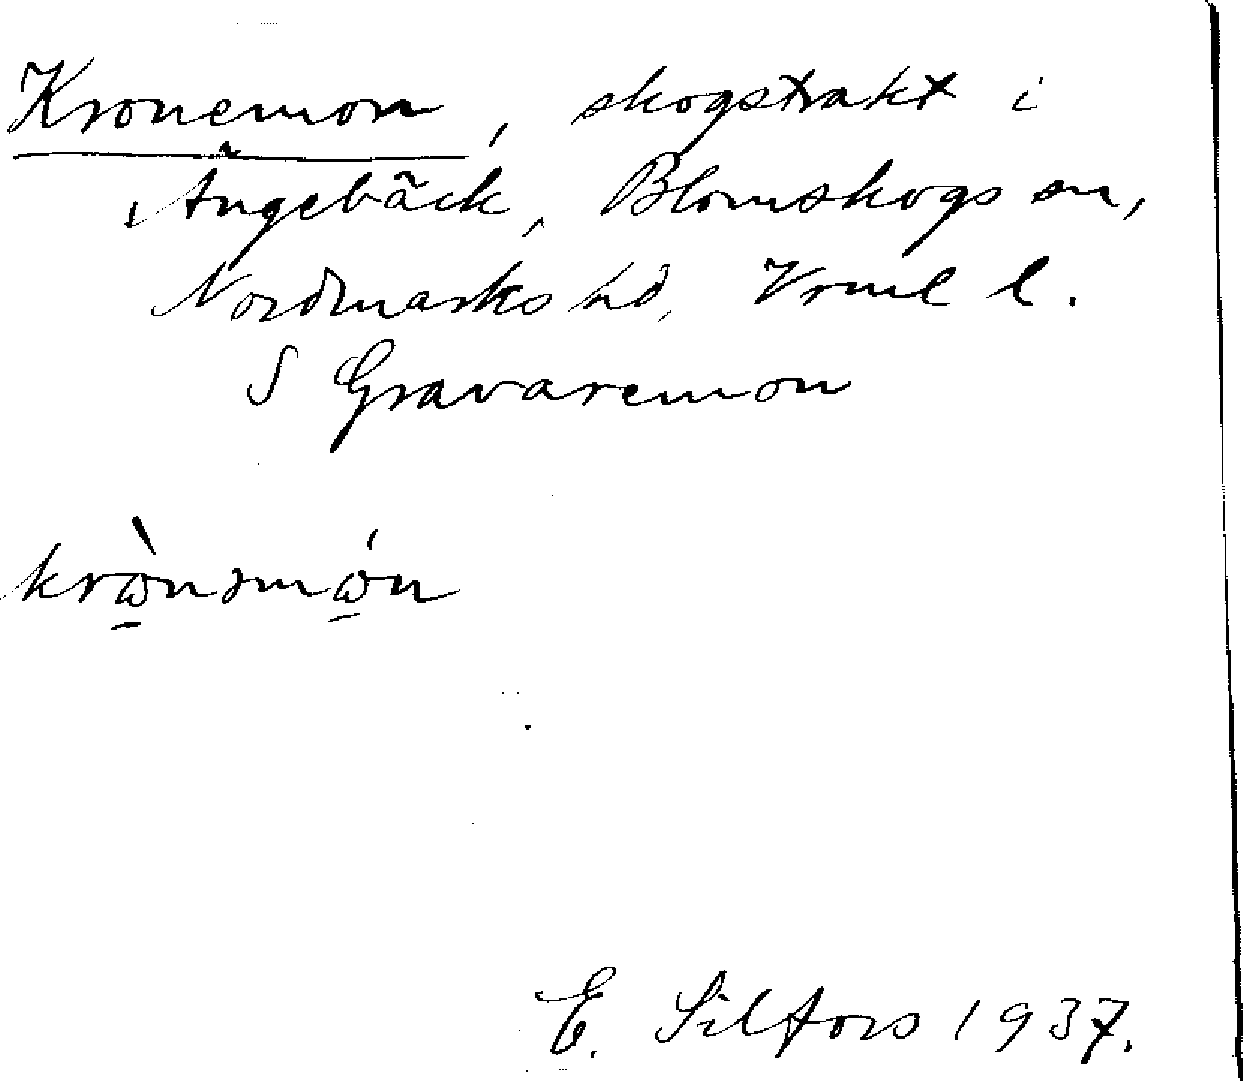 Kronemon, skogstrakt i
Ängebäck, Blomskogs sn,
Nordmarks hd, Vrml l.
S Gravaremon
krὼnəmώn
E. Silfors 1937.